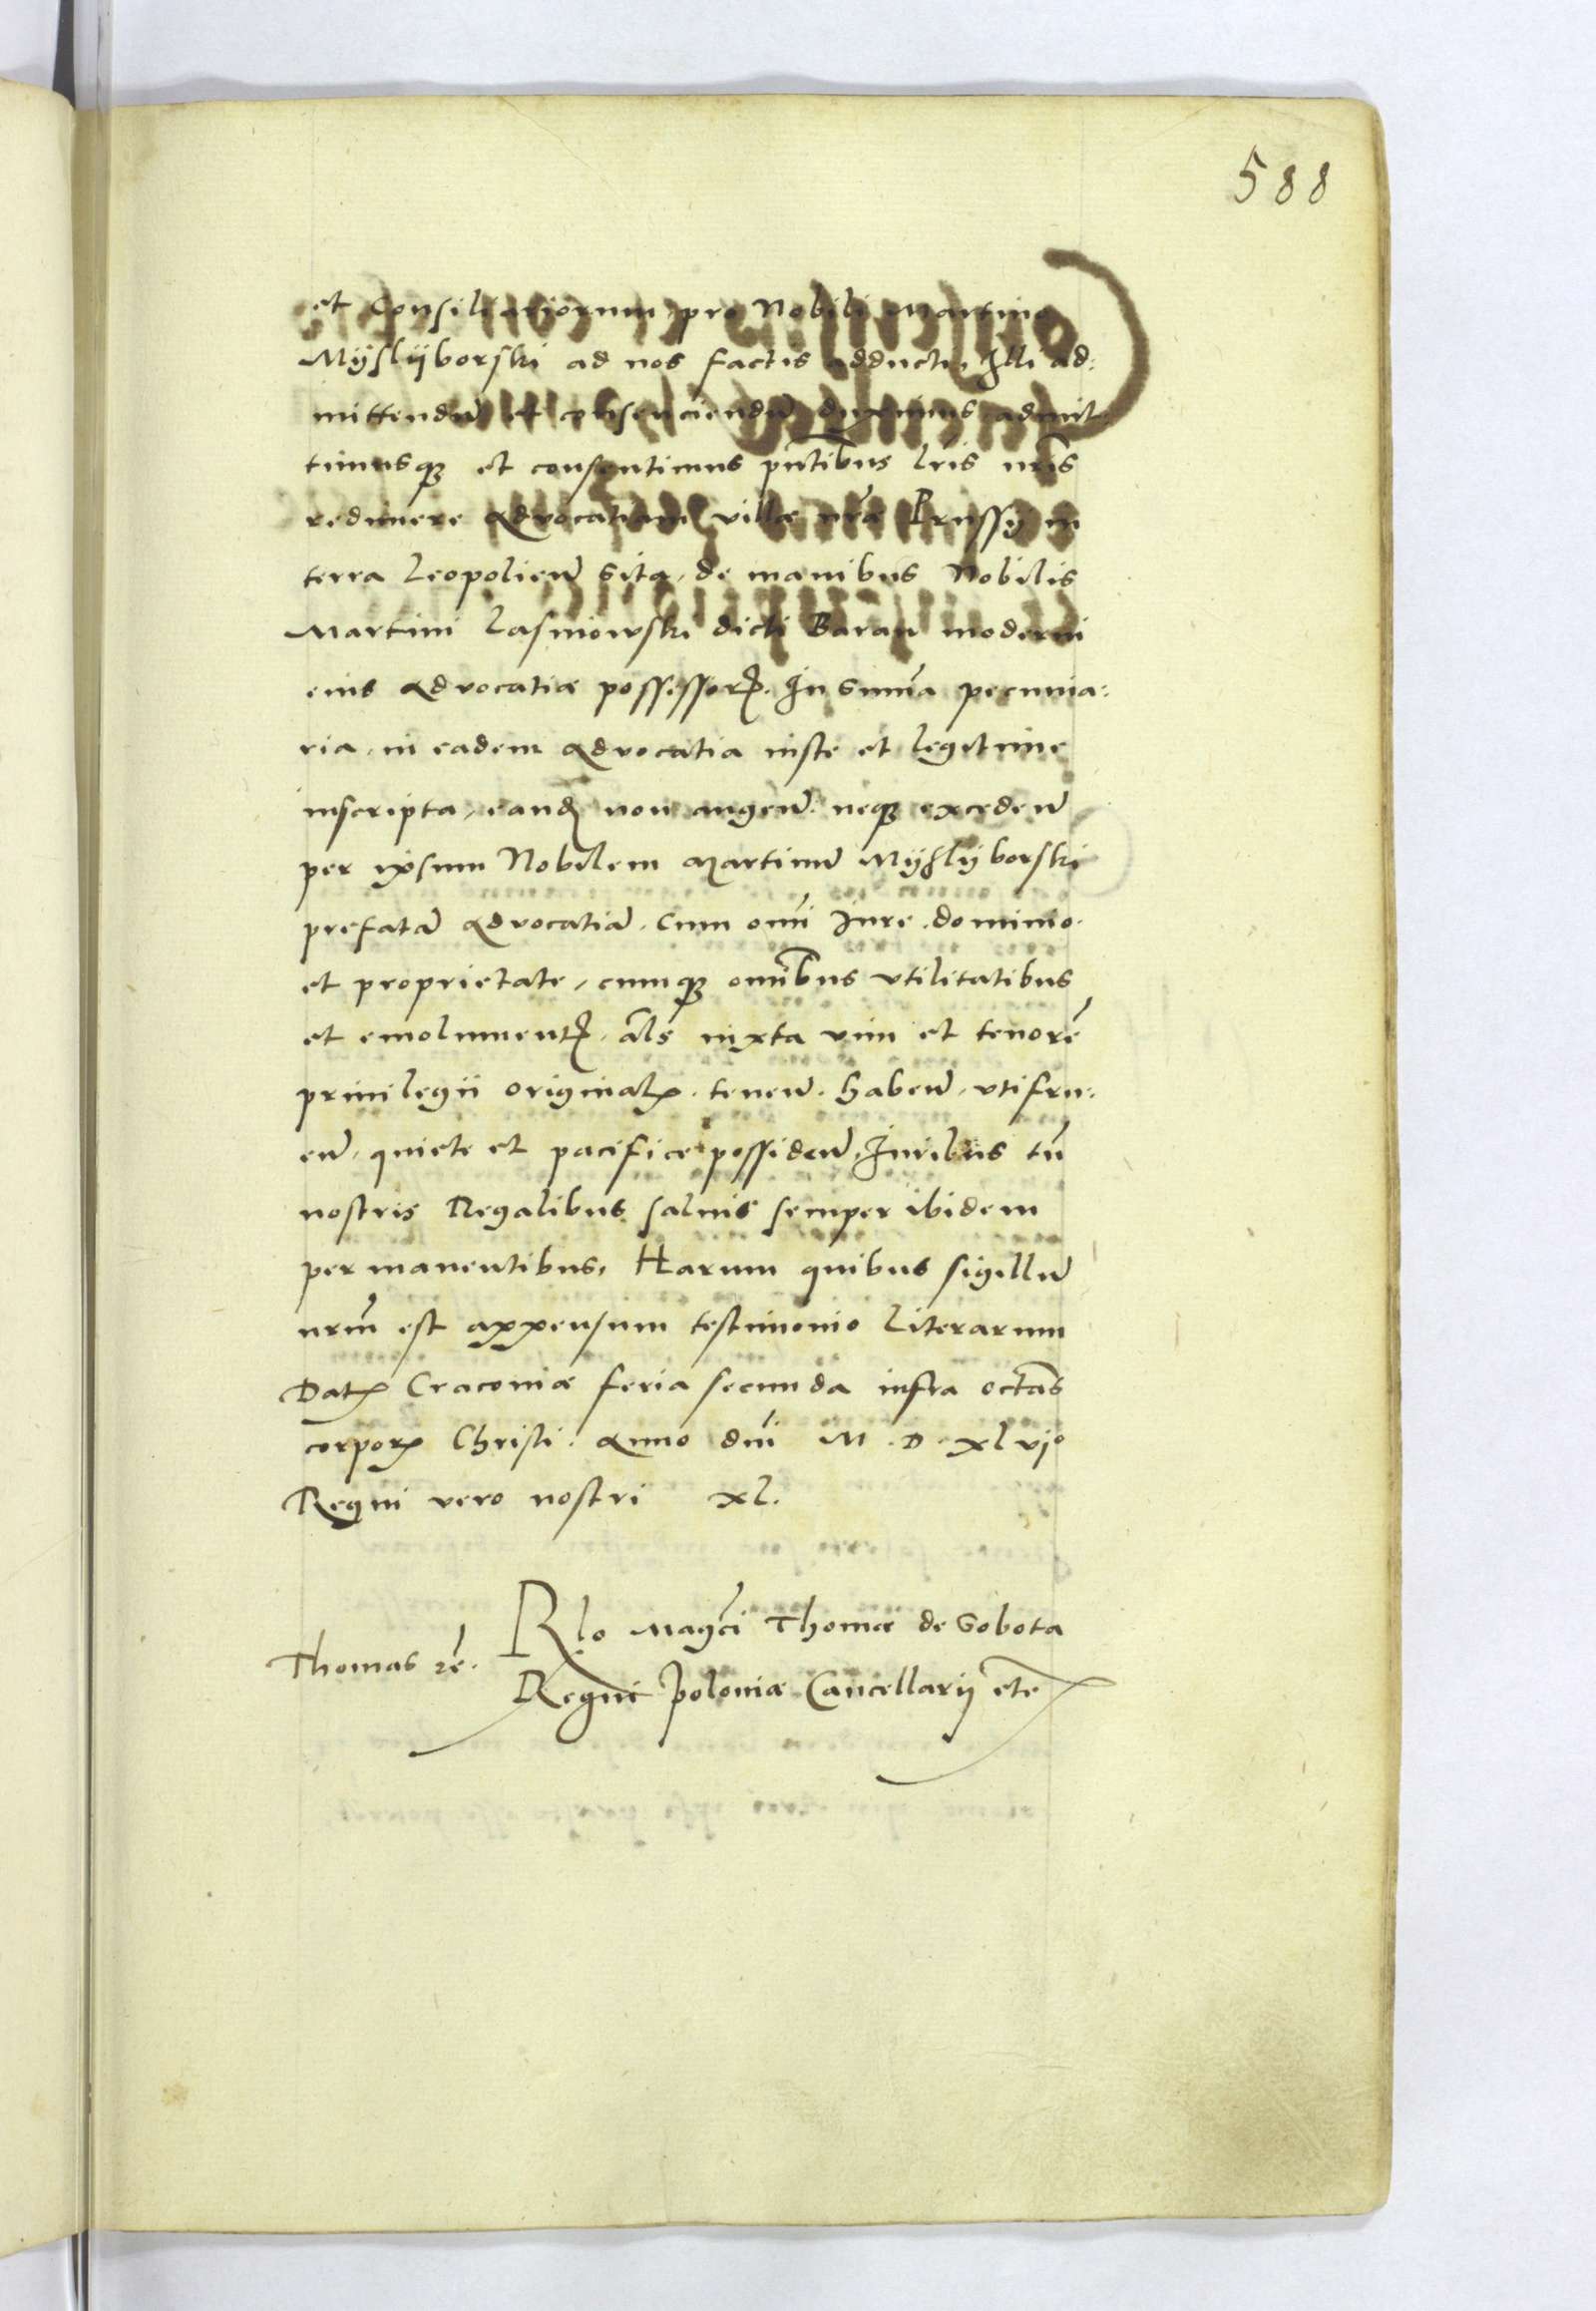 588
et Consiliariorum pro Nobili Martino
Mÿslÿborski ad nos factis adducti, Illi ad:
mittendũ et consenciendũ duximus admit
timusq3 et consentimus pñtibus lris nris
redimere Advocatiam villæ nræ Prussy in
terra Leopolien̄ sita, de manibus Nobilis
Martini Lasniowski dicti Baran moderni
eius Advocatiæ possessorꝭ. In summa pecunia:
ria, in eadem Advocatia iuste et legitime
inscripta, eandꝭ non augen̄. neq3 exceden̄
per ipsum Nobilem Martinũ Mÿslÿborski
prefatã Advocatiã. Cum omĩ Iure. dominio.
et proprietate, cumq3 omĩbus utilitatibus
et emolumentꝭ. als iuxta vim et tenorẽ
privilegii originalꝭ. tenen̄. haben̄. utifru:
en̄. quiete et pacifice possiden̄, Iuribus tñ
nostris Regalibus salvis semper ibidem
permanentibus, Harum quibus sigillũ
nrm̃ est appensum testimonio literarum
Datꝭ Cracoviæ feria secunda infra octãs
corporꝭ Christi. Anno dñi M. D. xlvjo
Regni vero nostri xl.
Rlo Magci Thomæ de Sobota
Thomas rẽ.
Regni Poloniæ Cancellarij etc